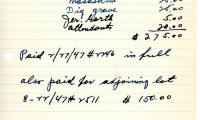 Dig grave 25.00
5.00
attendants 20.00
$ 275.00
Paid 7/27/47 # 2246 in full
also paid for adjoining lot
8-22/47 # 2511 $ 150.00